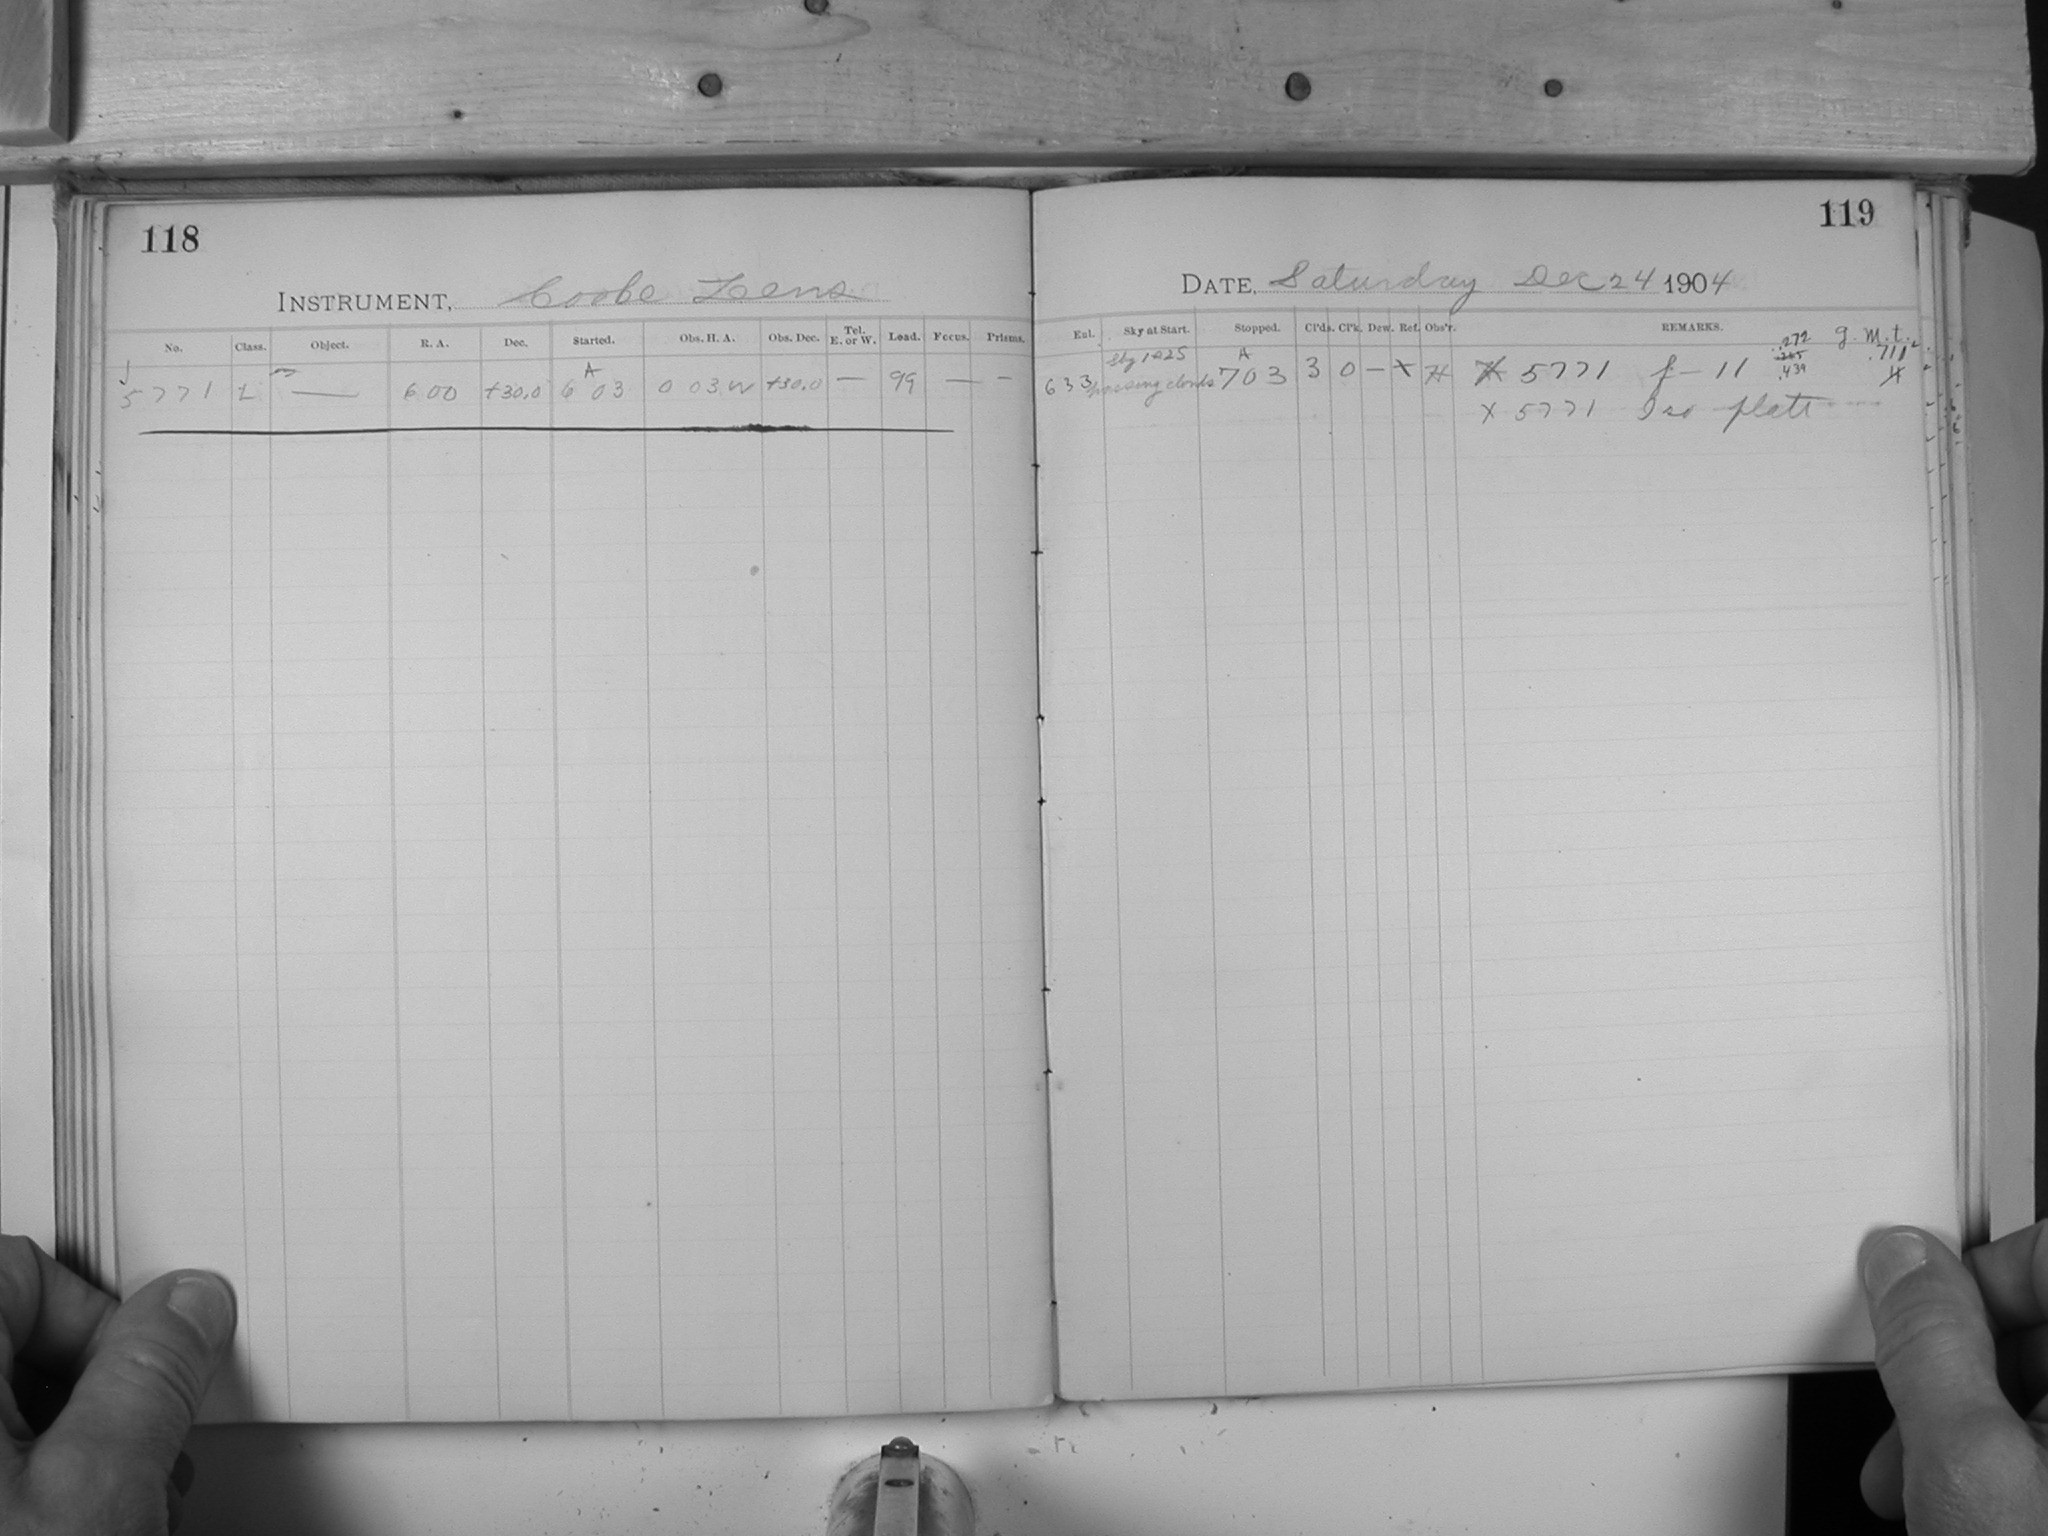 118
INSTRUMENT, Cooke Lens
No. Class. Object. R. A. Dec. Started. Obs. H. A. Obs. Dec. Tel. E. or W. Load. Focus. Prisms.
5771 L — 6 00 +30.0 A 6 03 0 03 W +30.0 — 99 — —
119
DATE, Saturday Dec 24 1904
Enl. Sky at Start. Stopped. Cl'ds. Cl'k. Dew. Ref. Obs'r. REMARKS. G. M. t.
6 33 passing clouds A 7 03 3 0 — X H X 5771 f — 11 .272 .439 .711
X 5771 Iso plate